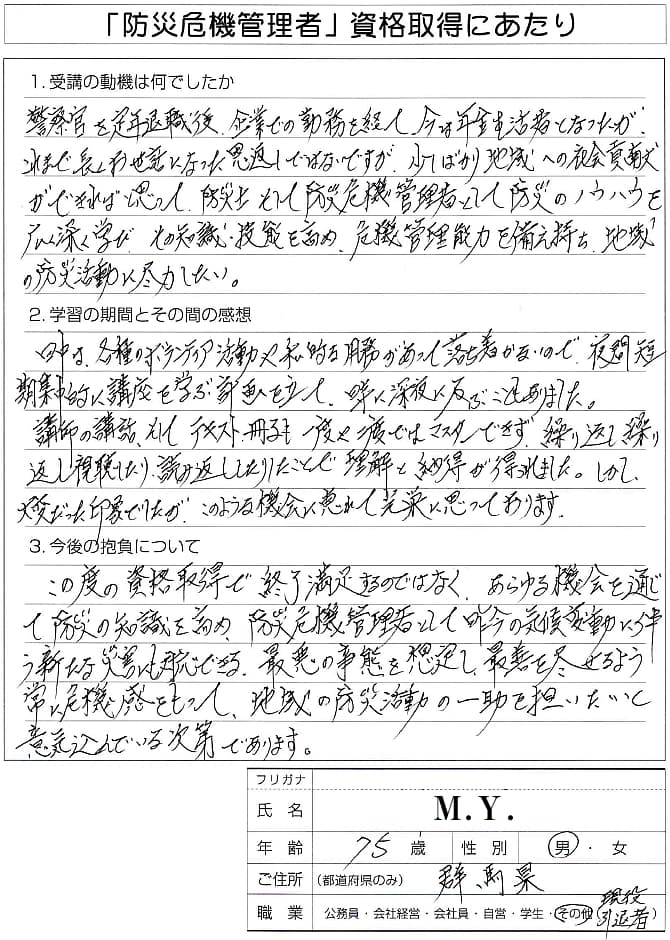 「防災危機管理者」資格取得にあたり
1. 受講の動機は何でしたか
警察官を定年退職後、企業での勤務を経て、今は年金生活者となったが、
これまで長らくお世話になった恩返しではないですが、少しばかり地域への社会貢献
ができればと思って、防災士そして防災危機管理者として防災のノウハウを
広く深く学び、その知識・技能を高め、危機管理能力を備え持ち、地域
の防災活動に尽力したい。
2. 学習の期間とその間の感想
日中は、各種のボランティア活動や私的な用務があって落ち着かないので、夜間短
期集中的に講座を学ぶ計画を立て、時に深夜に及ぶこともありました。
講師の講話、そしてテキスト一冊も一度や二度ではマスターできず、繰り返し繰り
返し視聴したり、読み返ししたりしたことで理解と納得が得れました。しかし、
大変だった印象でしたが、このような機会に恵れて光栄に思っております。
3. 今後の抱負について
この度の資格取得で終了満足するのではなく、あらゆる機会を通じ
て防災の知識を高め、防災危機管理者として昨今の気候変動に伴
う新たな災害にも対応できる、最悪の事態を想定し、最善を尽せるよう
常に危機感をもって、地域の防災活動の一助を担いたいと
意気込んでいる次第であります。
フリガナ
氏名 M.Y.
年齢 75歳 性別 男・女
ご住所 (都道府県のみ) 群馬県
職業 公務員・会社経営・会社員・自営・学生・その他(現役引退者)